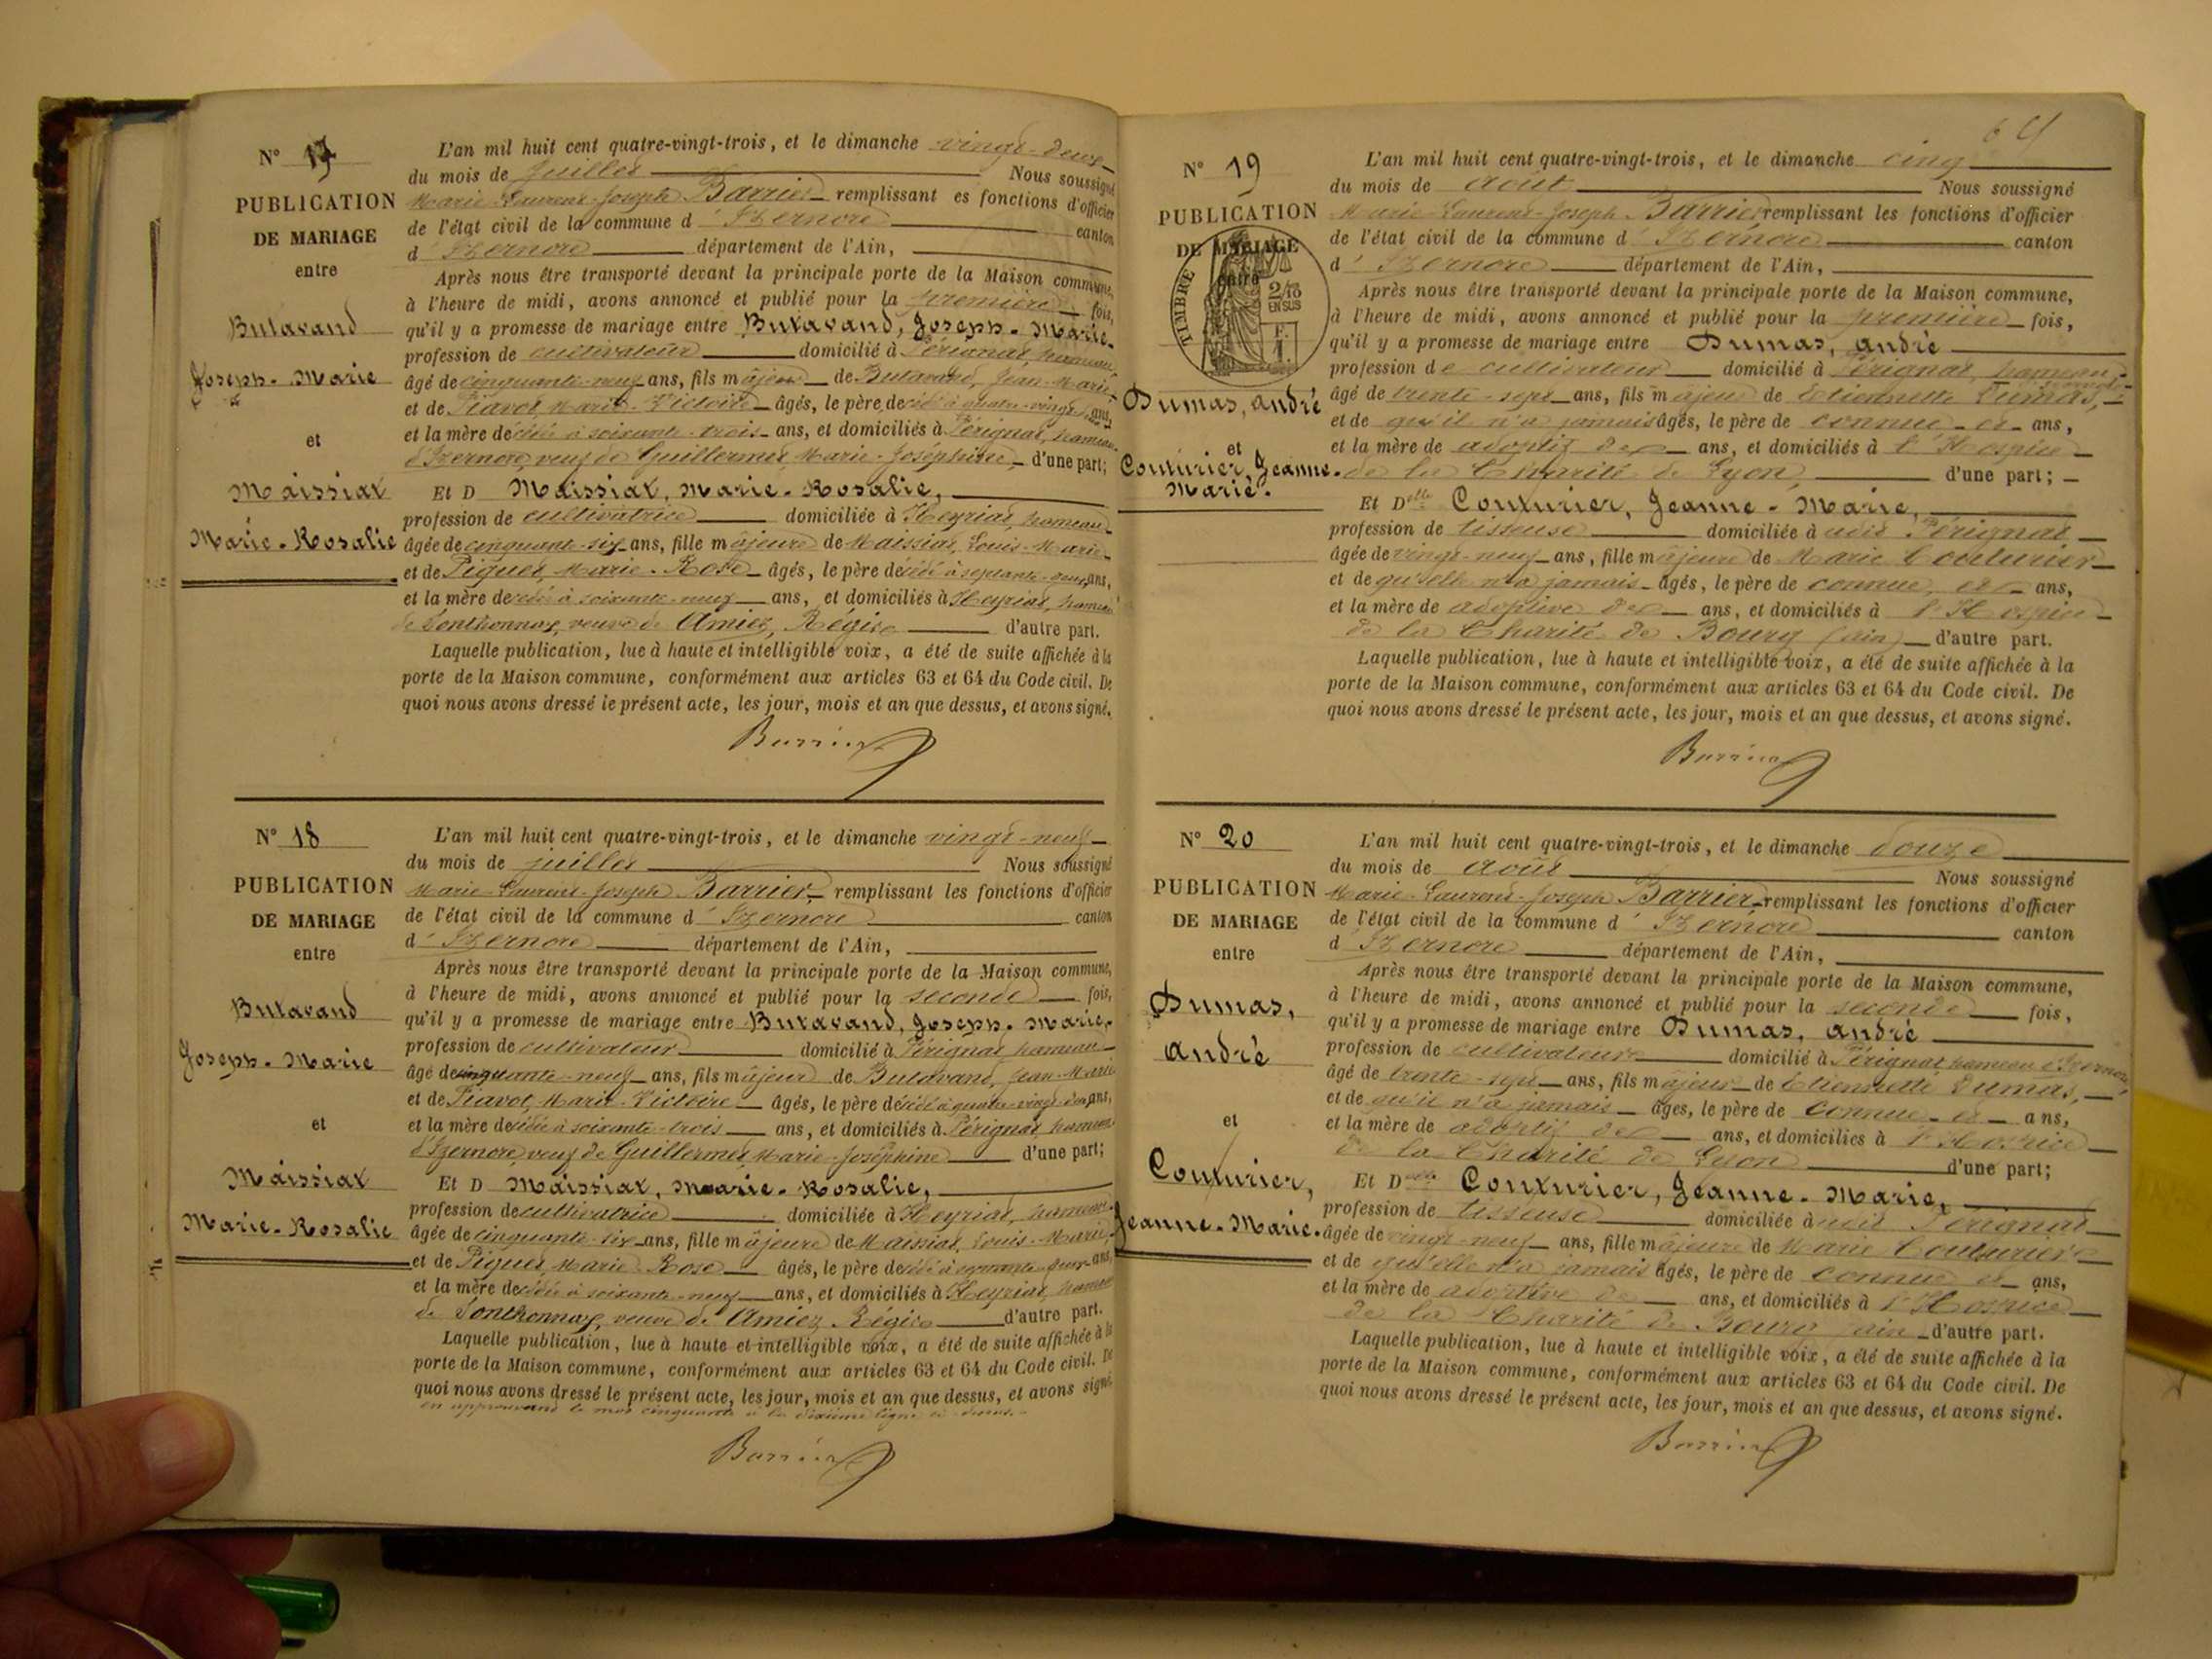 N° 17
PUBLICATION
DE MARIAGE
entre
Butavand
Joseph-Marie
et
Maissiat
Marie-Rosalie
L'an mil huit cent quatre-vingt-trois, et le dimanche vingt-deux
du mois de Juillet Nous soussigné
Marie-Laurent-Joseph Barrier remplissant es fonctions d'officier
de l'état civil de la commune d'Izernore canton
d'Izernore département de l'Ain,
Après nous être transporté devant la principale porte de la Maison commune,
à l'heure de midi, avons annoncé et publié pour la première fois,
qu'il y a promesse de mariage entre Butavand, Joseph-Marie
profession de cultivateur domicilié à Pérignat, hameau
âgé de cinquante-neuf ans, fils majeur de Butavand, Jean-Marie
et de Piavot, Marie-Victoire âgés, le père décédé à quatre-vingt ans,
et la mère décédée à soixante-trois ans, et domiciliés à Pérignat, hameau
d'Izernore, veuf de Guillermet, Marie-Joséphine d'une part;
Et D Maissiat, Marie-Rosalie,
profession de cultivatrice domiciliée à Heyriat, hameau
âgée de cinquante-six ans, fille majeure de Maissiat, Louis-Marie
et de Piquet, Marie-Rose âgés, le père décédé à septante-deux ans,
et la mère décédée à soixante-neuf ans, et domiciliés à Heyriat, hameau
de Sonthonnax, veuve de Amiez, Régis d'autre part.
Laquelle publication, lue à haute et intelligible voix, a été de suite affichée à la
porte de la Maison commune, conformément aux articles 63 et 64 du Code civil. De
quoi nous avons dressé le présent acte, les jour, mois et an que dessus, et avons signé.
Barrier
N° 18
PUBLICATION
DE MARIAGE
entre
Butavand
Joseph-Marie
et
Maissiat
Marie-Rosalie
L'an mil huit cent quatre-vingt-trois, et le dimanche vingt-neuf
du mois de juillet Nous soussigné
Marie-Laurent-Joseph Barrier remplissant les fonctions d'officier
de l'état civil de la commune d'Izernore canton
d'Izernore département de l'Ain,
Après nous être transporté devant la principale porte de la Maison commune,
à l'heure de midi, avons annoncé et publié pour la seconde fois,
qu'il y a promesse de mariage entre Butavand, Joseph-Marie,
profession de cultivateur domicilié à Pérignat, hameau
âgé de cinquante-neuf ans, fils majeur de Butavand, Jean-Marie
et de Piavot, Marie-Victoire âgés, le père décédé à quatre-vingt ans,
et la mère décédée à soixante-trois ans, et domiciliés à Pérignat, hameau
d'Izernore, veuf de Guillermet, Marie-Joséphine d'une part;
Et D Maissiat, Marie-Rosalie,
profession de cultivatrice domiciliée à Heyriat, hameau
âgée de cinquante-six ans, fille majeure de Maissiat, Louis-Marie
et de Piquet Marie-Rose âgés, le père décédé à septante-deux ans,
et la mère décédée à soixante-neuf ans, et domiciliés à Heyriat, hameau
de Sonthonnax, veuve de Amiez Régis d'autre part.
Laquelle publication, lue à haute et intelligible voix, a été de suite affichée à la
porte de la Maison commune, conformément aux articles 63 et 64 du Code civil. De
quoi nous avons dressé le présent acte, les jour, mois et an que dessus, et avons signé
en approuvant le mot cinquante à la dixième ligne ci-dessus.
Barrier
64
N° 19
PUBLICATION
DE MARIAGE
entre
TIMBRE
2/10
EN SUS
F.
1.
Dumas, André
et
Couturier, Jeanne-
Marie.
L'an mil huit cent quatre-vingt-trois, et le dimanche cinq
du mois de Août Nous soussigné
Marie-Laurent-Joseph Barrier remplissant les fonctions d'officier
de l'état civil de la commune d'Izernore canton
d'Izernore département de l'Ain,
Après nous être transporté devant la principale porte de la Maison commune,
à l'heure de midi, avons annoncé et publié pour la première fois,
qu'il y a promesse de mariage entre Dumas, André
profession de cultivateur domicilié à Pérignat, hameau
d'Izernore
âgé de trente-sept ans, fils majeur de Etiennette Dumas,
et de qu'il n'a jamais âgés, le père de connue et ans,
et la mère de adoptif de ans, et domiciliés à l'Hospice
de la Charité de Lyon, d'une part;
Et Delle Couturier, Jeanne-Marie,
profession de tisseuse domiciliée à audit Pérignat
âgée de vingt-neuf ans, fille majeure de Marie Couturier
et de qu'elle n'a jamais âgés, le père de connue, et ans,
et la mère de adoptive de ans, et domiciliés à l'Hospice
de la Charité de Bourg (ain) d'autre part.
Laquelle publication, lue à haute et intelligible voix, a été de suite affichée à la
porte de la Maison commune, conformément aux articles 63 et 64 du Code civil. De
quoi nous avons dressé le présent acte, les jour, mois et an que dessus, et avons signé.
Barrier
N° 20
PUBLICATION
DE MARIAGE
entre
Dumas,
André
et
Couturier,
Jeanne-Marie.
L'an mil huit cent quatre-vingt-trois, et le dimanche douze
du mois de Août Nous soussigné
Marie-Laurent-Joseph Barrier remplissant les fonctions d'officier
de l'état civil de la commune d'Izernore canton
d'Izernore département de l'Ain,
Après nous être transporté devant la principale porte de la Maison commune,
à l'heure de midi, avons annoncé et publié pour la seconde fois,
qu'il y a promesse de mariage entre Dumas, André
profession de cultivateur domicilié à Pérignat hameau d'Izernore
âgé de trente-sept ans, fils majeur de Etiennette Dumas,
et de qu'il n'a jamais âgés, le père de connue et ans,
et la mère de adoptif de ans, et domiciliés à l'Hospice
de la Charité de Lyon d'une part;
Et Delle Couturier, Jeanne-Marie,
profession de tisseuse domiciliée à audit Pérignat
âgée de vingt-neuf ans, fille majeure de Marie Couturier
et de qu'elle n'a jamais âgés, le père de connue et ans,
et la mère de adoptive de ans, et domiciliés à l'Hospice
de la Charité de Bourg ain d'autre part.
Laquelle publication, lue à haute et intelligible voix, a été de suite affichée à la
porte de la Maison commune, conformément aux articles 63 et 64 du Code civil. De
quoi nous avons dressé le présent acte, les jour, mois et an que dessus, et avons signé.
Barrier